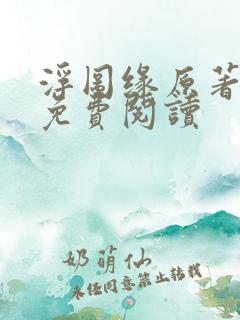 浮图缘原著
免費閱讀
奶萌仙
未经同意禁止转载